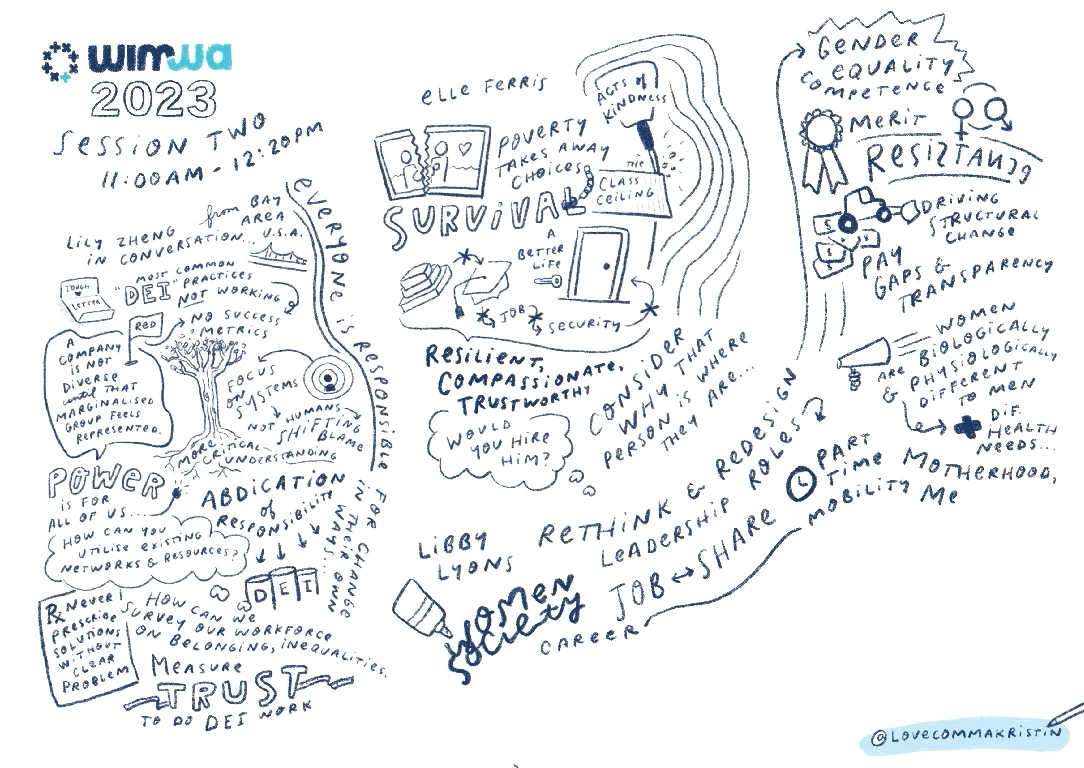 wimwa
2023
SESSION TWO
11:00AM - 12:20PM
LILY ZHENG
IN CONVERSATION...
from BAY
AREA
U.S.A.
EVERYONE IS RESPONSIBLE
FOR CHANGE
IN THEIR OWN
WAYS...
TOUGH
LETTER
MOST COMMON
"DEI" PRACTICES
NOT WORKING
NO SUCCESS
METRICS
RED
A
COMPANY
IS NOT
DIVERSE
until THAT
MARGINALISED
GROUP FEELS
REPRESENTED.
FOCUS
ON SYSTEMS
NOT HUMANS
SHIFTING
BLAME
MORE
CRITICAL
UNDERSTANDING
POWER
IS FOR
ALL OF US...
ABDICATION
of
RESPONSIBILITY
DEI
HOW CAN YOU
UTILISE EXISTING
NETWORKS & RESOURCES?
Rx NEVER
PRESCRIBE
SOLUTIONS
WITHOUT
CLEAR
PROBLEM
HOW CAN WE
SURVEY OUR WORKFORCE
ON BELONGING, INEQUALITIES.
MEASURE
TRUST
TO DO DEI WORK
ELLE FERRIS
POVERTY
TAKES AWAY
CHOICES
ACTS of
KINDNESS
THE
CLASS
CEILING
SURVIVAL
A
BETTER
LIFE
JOB
SECURITY
RESILIENT,
COMPASSIONATE,
TRUSTWORTHY
WOULD
YOU HIRE
HIM?
CONSIDER
WHY THAT
PERSON IS WHERE
THEY ARE...
LIBBY
LYONS
WOMEN
SOCIETY
RETHINK & REDESIGN
LEADERSHIP ROLES
JOB ↔ SHARE
PART
TIME
MOTHERHOOD,
MOBILITY ME
CAREER
GENDER
EQUALITY
COMPETENCE
MERIT
RESISTANCE
DRIVING
STRUCTURAL
CHANGE
PAY
GAPS &
TRANSPARENCY
WOMEN
ARE BIOLOGICALLY
& PHYSIOLOGICALLY
DIFFERENT
TO MEN
DIF.
HEALTH
NEEDS...
@LOVECOMMAKRISTIN